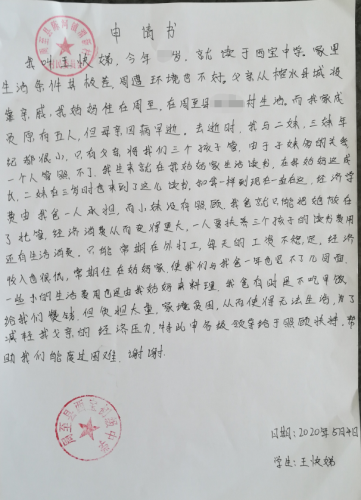 申请书
我叫王快娣，今年 岁，就读于西宝中学。家里
生活条件其极差，周遭环境也不好，父亲从柞水县城投
靠亲戚，我奶奶住在周至，在周至县 村生活。而我家成
员原有五人，但母亲因病早逝。去逝时，我与二妹、三妹年
纪都很小，只有父亲将我们三个孩子管，由于妹幼因关我
一个人管照，不，我生来就在我奶奶家生活读书，在我奶奶这成
长，二妹在三岁时也来到了这儿读书，如学一样到现在一直在这，经济等
费由我爸一人承担，而小妹没有照顾，我爸就只能把她放在
了托管，经济消费从而变得更大，一人要扶养三个孩子的读书费用
还有生活消费，只能常期在外打工，每天的工资不稳定，经济
收入也很低，常期住在奶奶家，使我们与我爸一年也见不了几面面，
一些小的生活费用也是由我奶奶来料理，我爸有时是不吃早饭，
给我们餐钱，但负担太重，家境贫困，从而使得无法生活，为了
减轻我父亲的经济压力，特此申各级领导给于照顾扶持，帮
助我们能度过困难，谢谢.
日期：2020年5月4日
学生：王快娣